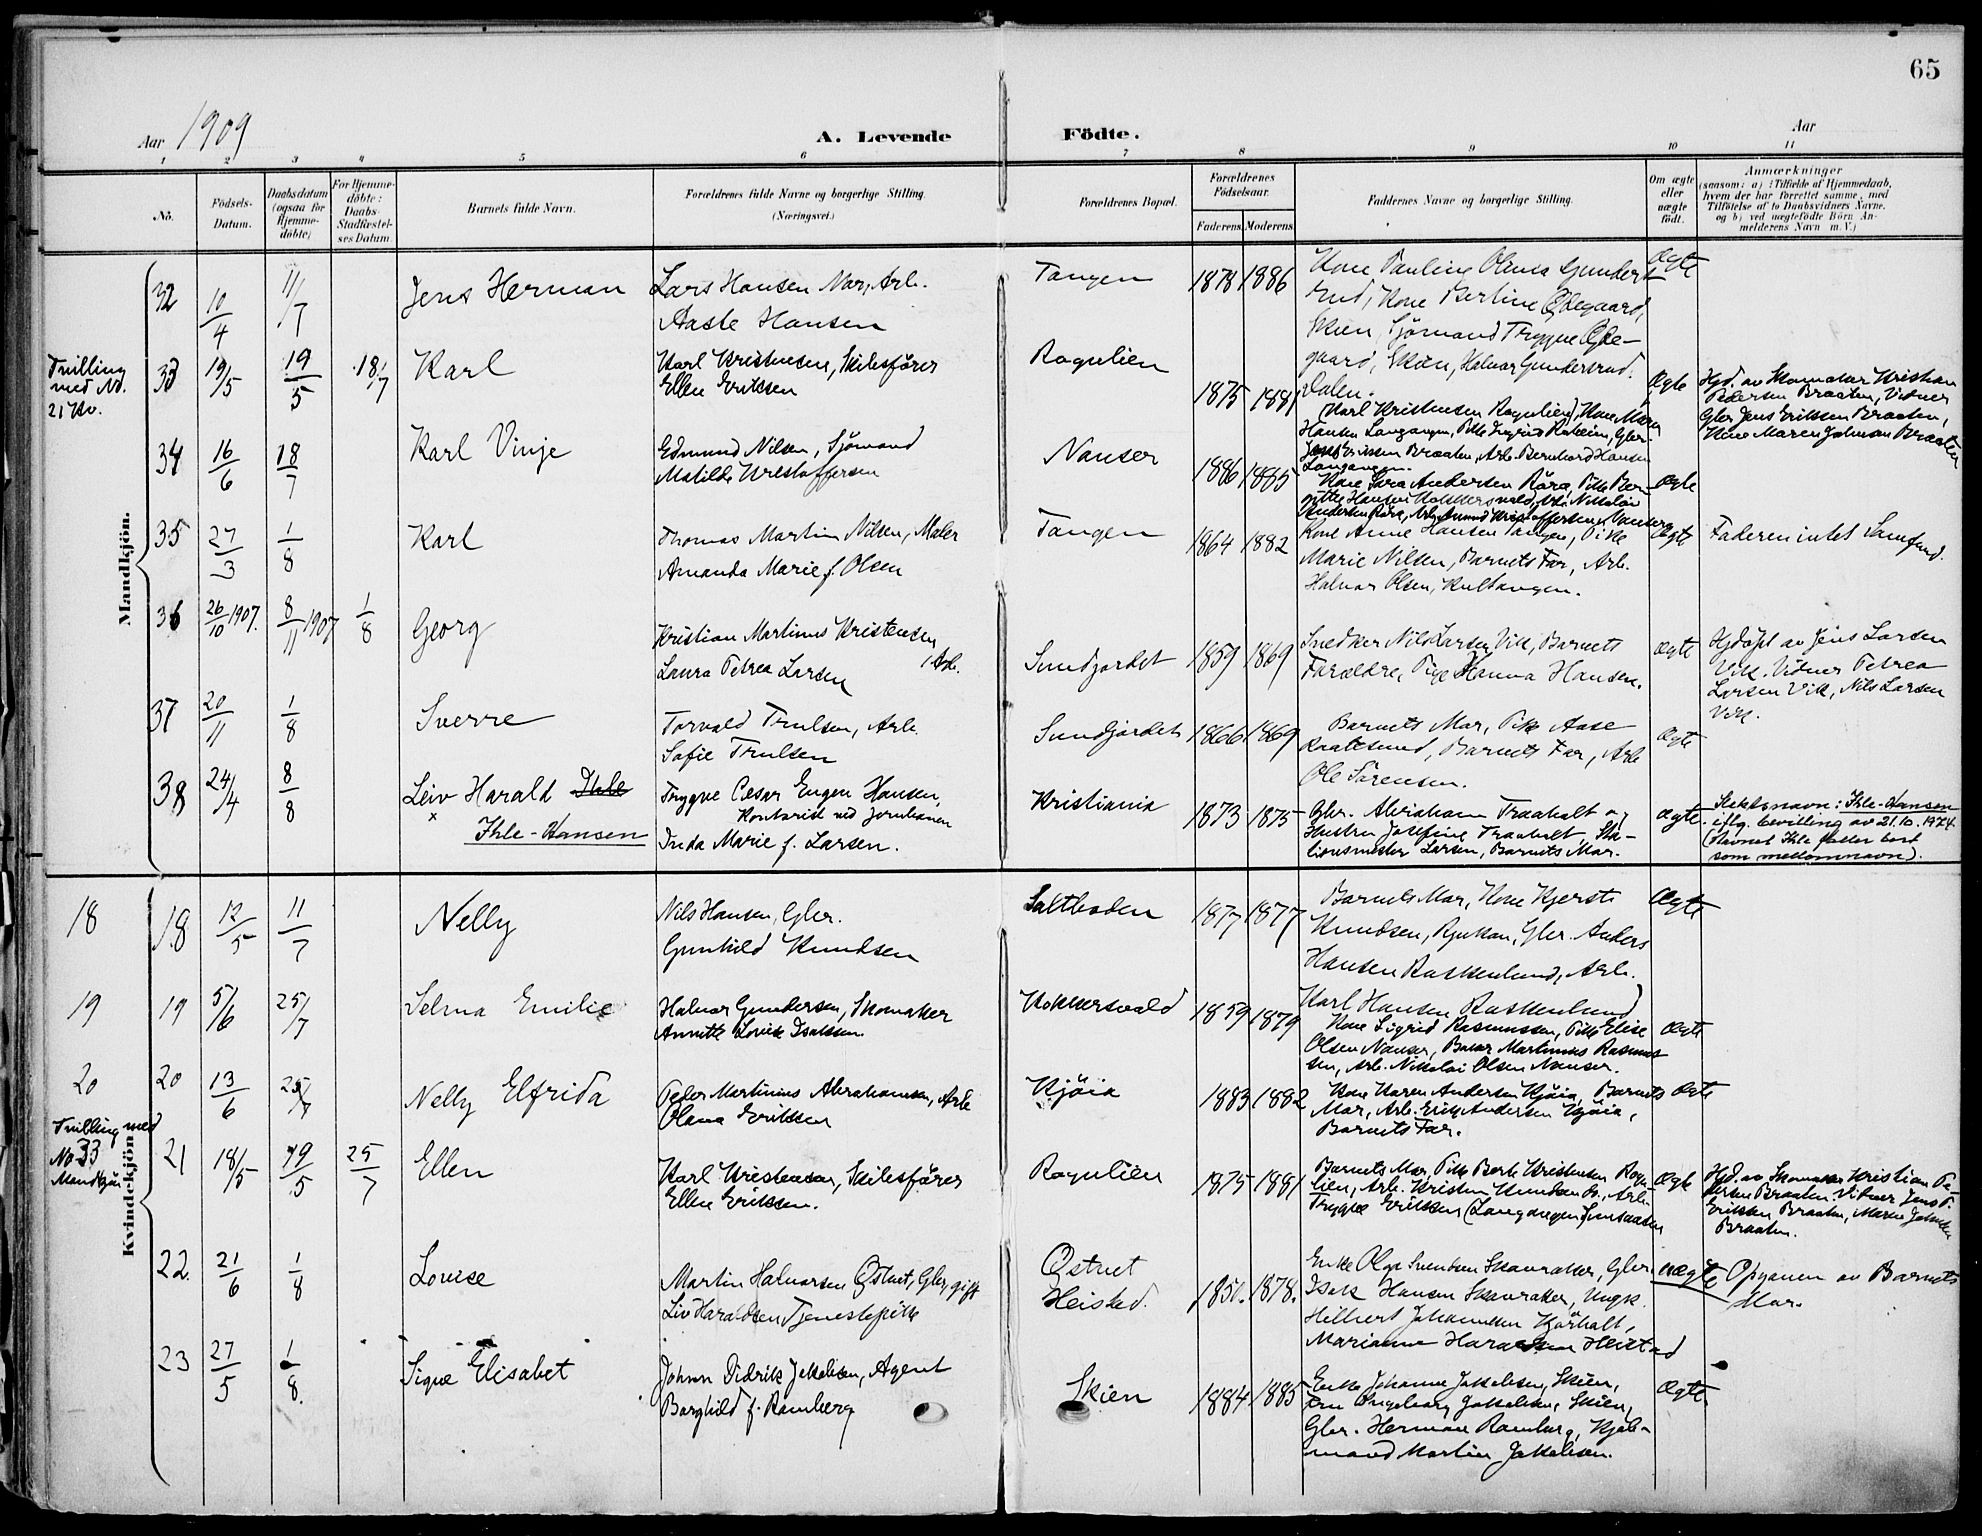 65
Aar 1909
A. Levende Födte.
Aar
1 2 3 4 5 6 7 8 9 10 11
No.
Födsels-Datum.
Daabsdatum (ogsaa for Hjemme-döbte)
For Hjemme-döbte: Daabs-Stadfæstel-ses Datum.
Barnets fulde Navn.
Forældrenes fulde Navne og borgerlige Stilling.
(Næringsvei.)
Forældrenes Bopæl.
Forældrenes Födselsaar.
Faderens. Moderens.
Faddernes Navne og borgerlige Stilling.
Om ægte eller uægte födt.
Anmærkninger
(saasom: a) i Tilfælde af Hjemmedaab,
hvem der har forrettet samme, med
Tilföielse af to Daabsvidners Navne.
og b) ved uægtefödte Börn An-
melderens Navn m. V.)
Mandkjön.
32 10/4 11/7 Jens Herman
Lars Hansen Nar, Arb.
Aaste Hansen
Tangen 1878 1886
Kone Pauline Olensa Gundersrud, Kone Bertine Ødegaard,
Skien, Sjömand Trygve Öde-
gaard, Skien, Halvor Gundersrud.
Dalen.
Ægte
Tvilling
med No.
21 Kv.
33 19/5 19/5 18/7 Karl
Karl Kristensen, Skibsförer
Ellen Eriksen
Rognlien 1875 1881
Karl Kristensen Rognlien, Kone Maren
Hansen Langangen, Pike Ingrid
Braaten, Arb. Bernhard Hansen
Langangen.
Ægte
Hjd. av Skomaker Kristian
Pedersen Braaten, Vidner
Gbr Jens Eriksen Braaten,
Kone Maren Johnsen Braaten
34 16/6 18/7 Karl Vinje
Edmund Nilsen, Sjömand
Matilde Kristoffersen
Nanser 1886 1885
Kone Sara Andersen Röra, Pike Ber-
Hansen Kokkersvold, Arb. Nikolai
Andersen Röra, Arb. Kristoffersen, Nanser
Ægte
35 27/3 1/8 Karl
Thomas Martin Nilsen, Maler
Amanda Marie f. Olsen
Tangen 1864 1882
Kone Anne Hansen Tangen, Pike
Marie Nilsen, Barnets Far, Arb.
Halvor Olsen, Kultangen.
Ægte
Faderen intet Samfund.
36 26/10 1907. 8/11 1907 1/8 Georg
Kristian Martinus Kristensen, Arb.
Laura Petrea Larsen
Sundjordet 1859 1869
Snedker Nils Larsen Vik, Barnets
Forældre, Pige Hanna Hansen.
Ægte
Hjdöpt av Jens Larsen
Vik. Vidner Petrea
Larsen Vik, Nils Larsen
Vik.
37 20/11 1/8 Sverre
Torvald Trulsen, Arb.
Sofie Trulsen
Sundjordet 1866 1869
Barnets Mor, Pike Aase
Barnets Far, Arb
Ole Sörensen.
Ægte
38 24/4 8/8 Leiv Harald Ihle
× Ihle-Hansen
Trygve Cæsar Eugen Hansen,
Kontorist ved Jernbanen
Inda Marie f. Larsen.
Kristiania 1873 1875
Gbr. Abraham Traaholt og
Hustru Josefine Traaholt, Sta-
tionsmester Larsen, Barnets Mor.
Ægte
Slektsnavn: Ihle-Hansen
iflg. bevilling av 21.10.1924.
(Navnet Ihle faller bort
som mellomnavn).
Kvindekjön.
18 18 12/5 11/7 Nelly
Nils Hansen, Gbr.
Gunhild Knudsen
Saltboden 1877 1877
Barnets Mor, Kone Kjersti
Knudsen, Rjukan, Gbr. Anders
Hansen Raskenlund, Arb.
Karl Hansen Raskenlund
Ægte
19 19 5/6 25/7 Selma Emilie
Halvor Gundersen, Skomaker
Annette Lovise Isaksen
Kokkersvold 1859 1879
Kone Sigrid Rasmussen, Pike Elise
Olsen Nanser, Baker Martinius Rasmus-
sen, Arb. Nikolai Olsen Nanser.
Ægte
20 20 13/6 25/7 Nelly Elfrida
Peder Martinius Abrahamsen, Arb
Olena Eriksen
Kjöia 1883 1882
Kone Karen Andersen Kjöia, Barnets
Mor, Arb. Erik Andersen Kjöia,
Barnets Far.
Ægte
Tvilling med
No 33
Mandkjön
21 18/5 19/5 25/7 Ellen
Karl Kristensen, Skibsförer
Ellen Eriksen.
Rognlien 1875 1881
Barnets Mor, Pike Berte Kristensen Rogn-
lien, Arb. Kristen Knudsen Arb.
Trygve Eriksen (Langangen)
Ægte
Hjd. av Skomaker Kristian Pe-
dersen Braaten. Vidner Jens P.
Eriksen Braaten, Maren Johnsen
Braaten.
22. 21/6 1/8 Lovise
Martin Halvorsen Østvet, Gbr, gift
Liv Haraldsen Tjenestepike
Østvet
Heistad. 1850. 1878.
Enke Olga Svendsen Skavraker, Gbr.
Isak Hansen Skavraker, Ungk.
Hilbert Johannessen Kjörholt,
Marianne Haraldsen Heistad
uægte
Opgaven av Barnets
Mor.
23 27/5 1/8. Signe Elisabet
Johan Didrik Jakobsen, Agent
Borghild f. Ramberg
Skien 1884 1885
Enke Johanne Jakobsen, Skien,
Frn Ingeborg Jakobsen, Skien,
Gbr. Herman Ramberg, Kjöb-
mand Martin Jakobsen.
Ægte